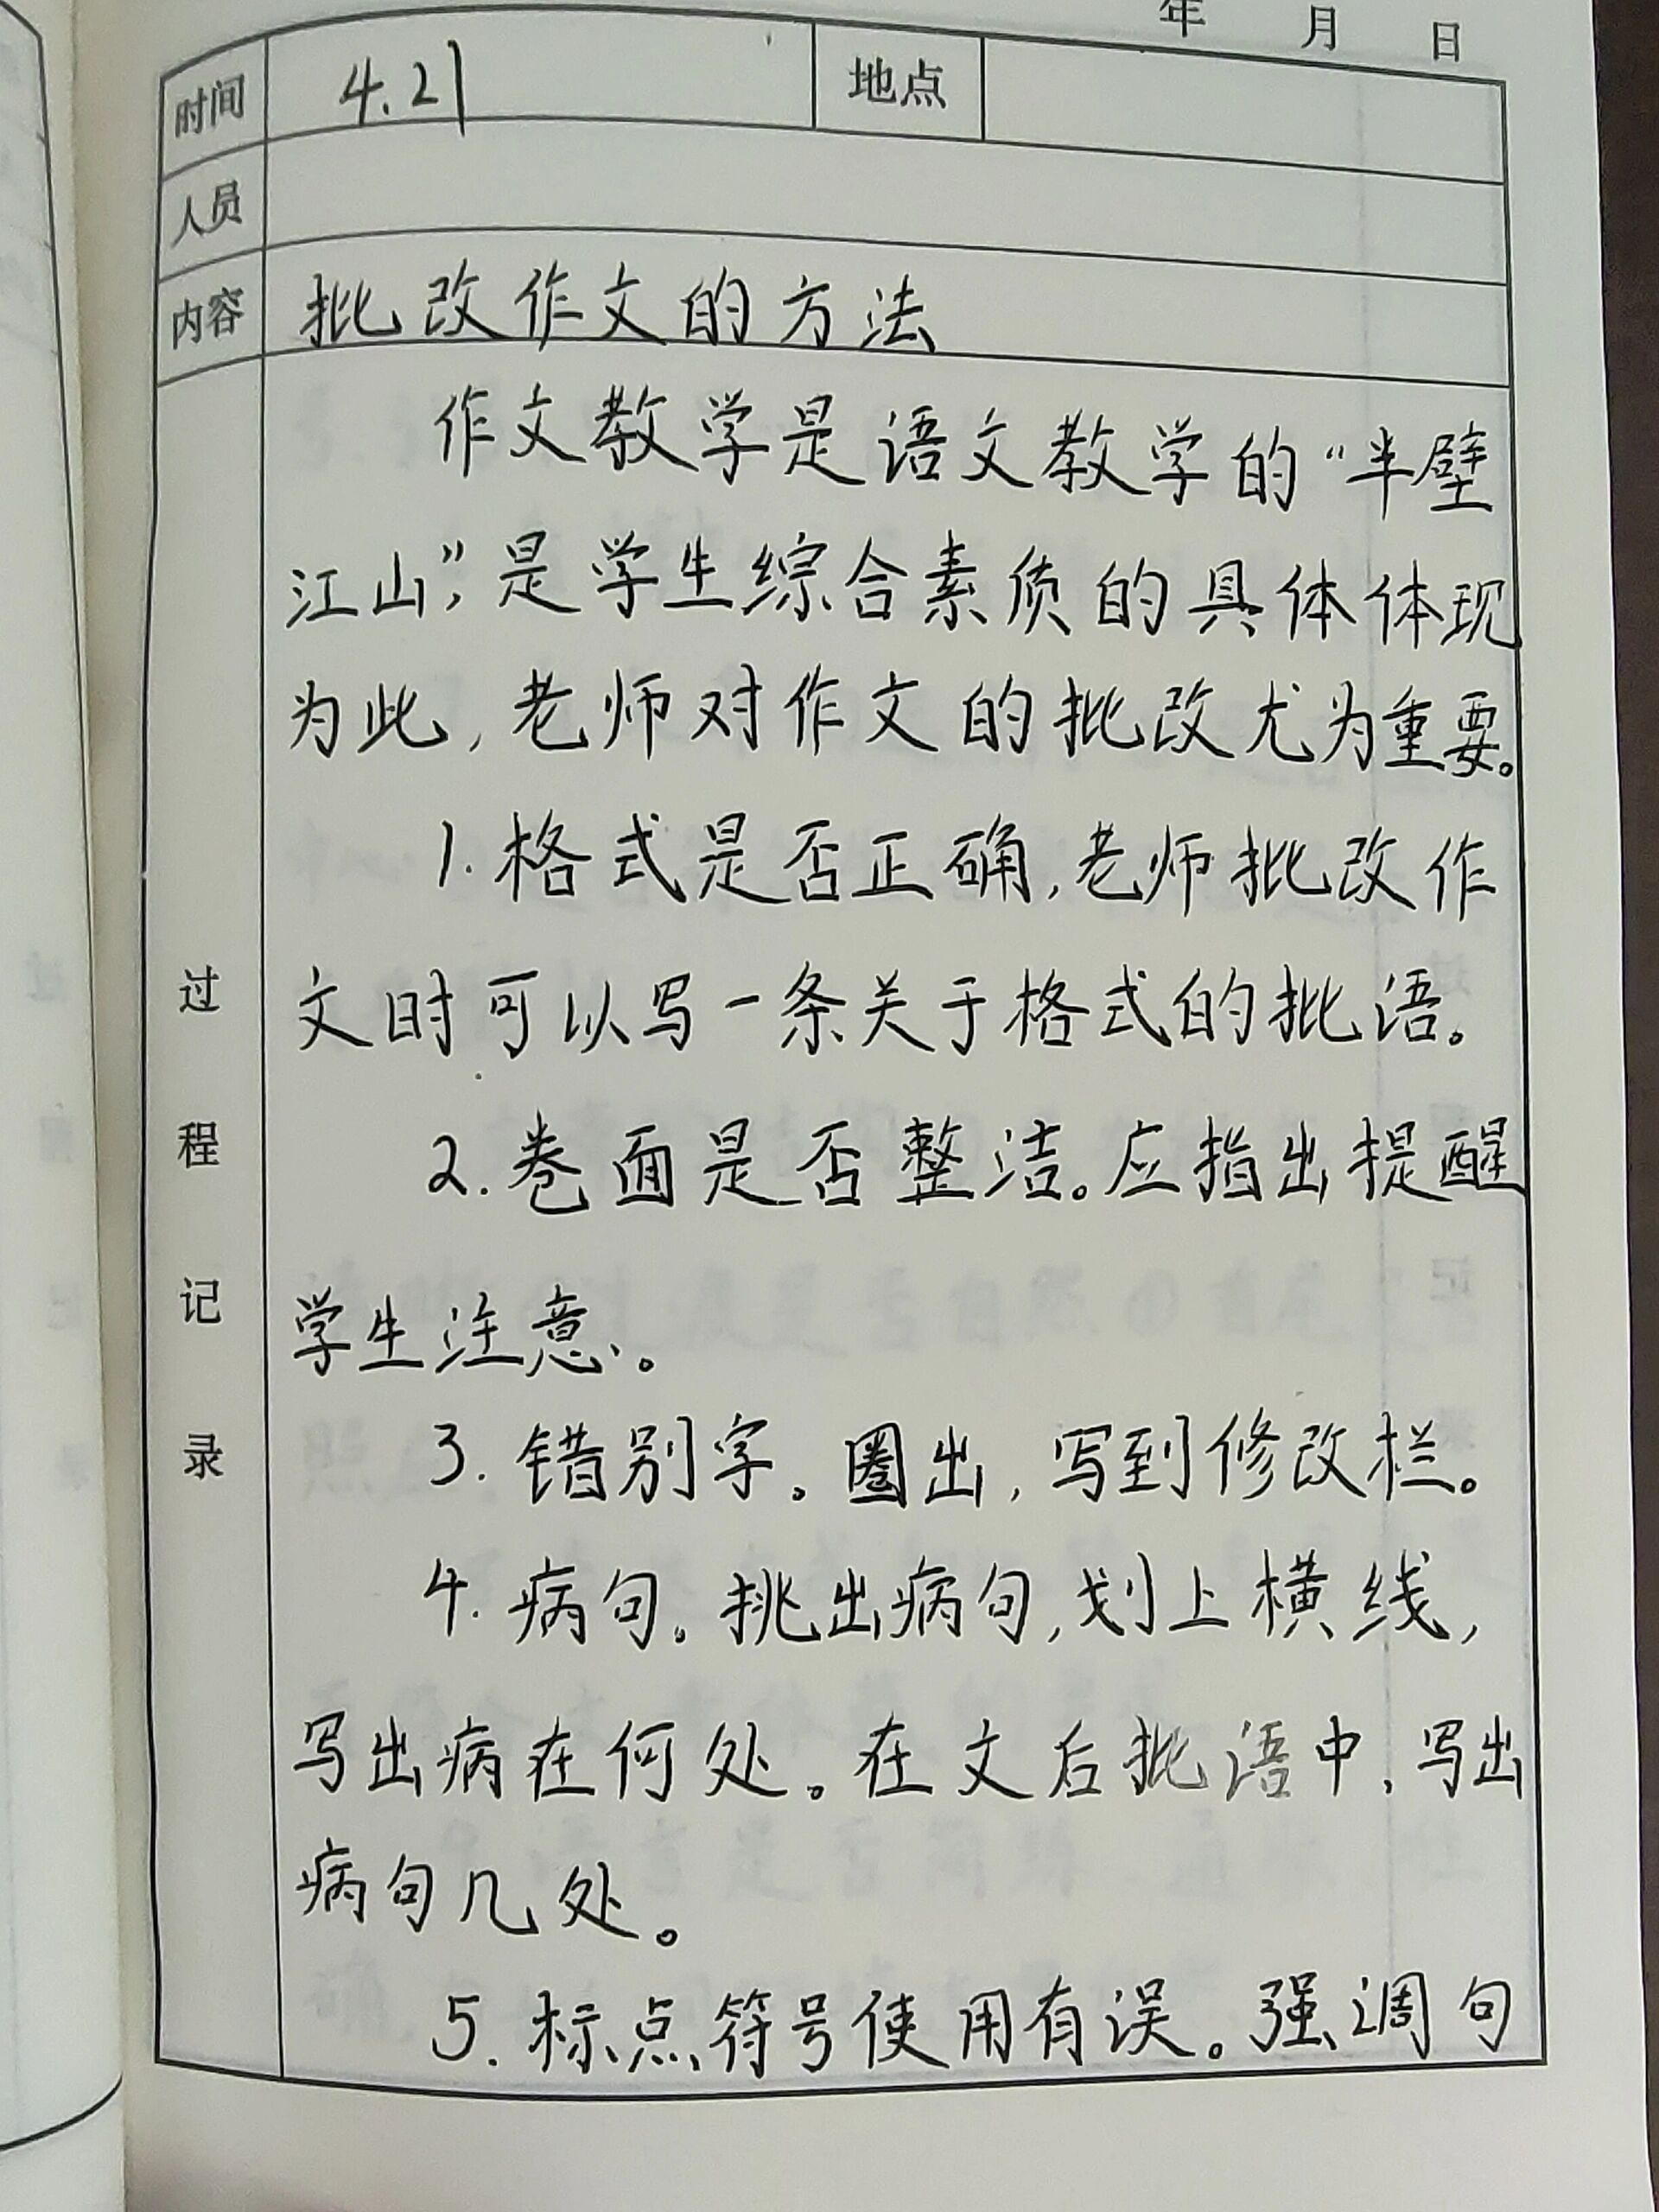 年 月 日
时间 4.21 地点
人员
内容 批改作文的方法
作文教学是语文教学的“半壁
江山”,是学生综合素质的具体体现
为此,老师对作文的批改尤为重要。
1.格式是否正确,老师批改作
文时可以写一条关于格式的批语。
2.卷面是否整洁。应指出提醒
学生注意。
3.错别字。圈出,写到修改栏。
4.病句。挑出病句,划上横线,
写出病在何处。在文后批语中,写出
病句几处。
5.标点符号使用有误。强调句
过
程
记
录